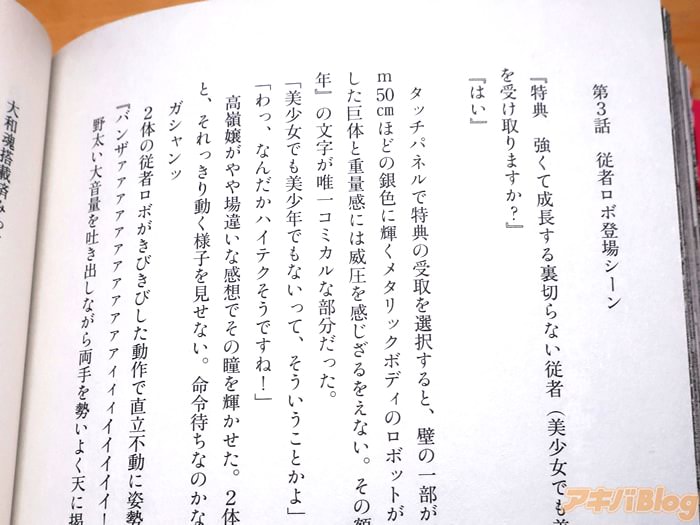 第３話　従者ロボ登場シーン
『特典　強くて成長する裏切らない従者（美少女でも美
を受け取りますか？』
『はい』
タッチパネルで特典の受取を選択すると、壁の一部が
ｍ50㎝ほどの銀色に輝くメタリックボディのロボットが
した巨体と重量感には威圧を感じざるをえない。その額
年』の文字が唯一コミカルな部分だった。
「美少女でも美少年でもないって、そういうことかよ」
「わっ、なんだかハイテクそうですね！」
高嶺嬢がやや場違いな感想でその瞳を輝かせた。２体
と、それっきり動く様子を見せない。命令待ちなのかな
ガシャンッ
２体の従者ロボがきびきびした動作で直立不動に姿勢
『バンザァァァァァァァァァァァィィィイイイイイ！
野太い大音量を吐き出しながら両手を勢いよく天に掲
大和魂搭載済みっ
アキバBlog